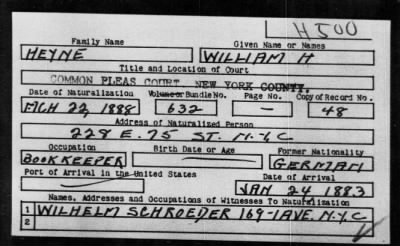 H500
Family Name Given Name or Names
HEYNE WILLIAM H
Title and Location of Court
COMMON PLEAS COURT, NEW YORK COUNTY.
Date of Naturalization Volume or Bundle No. Page No. Copy of Record No.
MCH 22, 1888 632 — 48
Address of Naturalized Person
228 E. 75 ST. N.Y.C
Occupation Birth Date or Age Former Nationality
BOOKKEEPER GERMAN
Port of Arrival in the United States Date of Arrival
JAN 24 1883
Names, Addresses and Occupations of Witnesses To Naturalization
1 WILHELM SCHROEDER 169-1AVE. N.Y.C
2